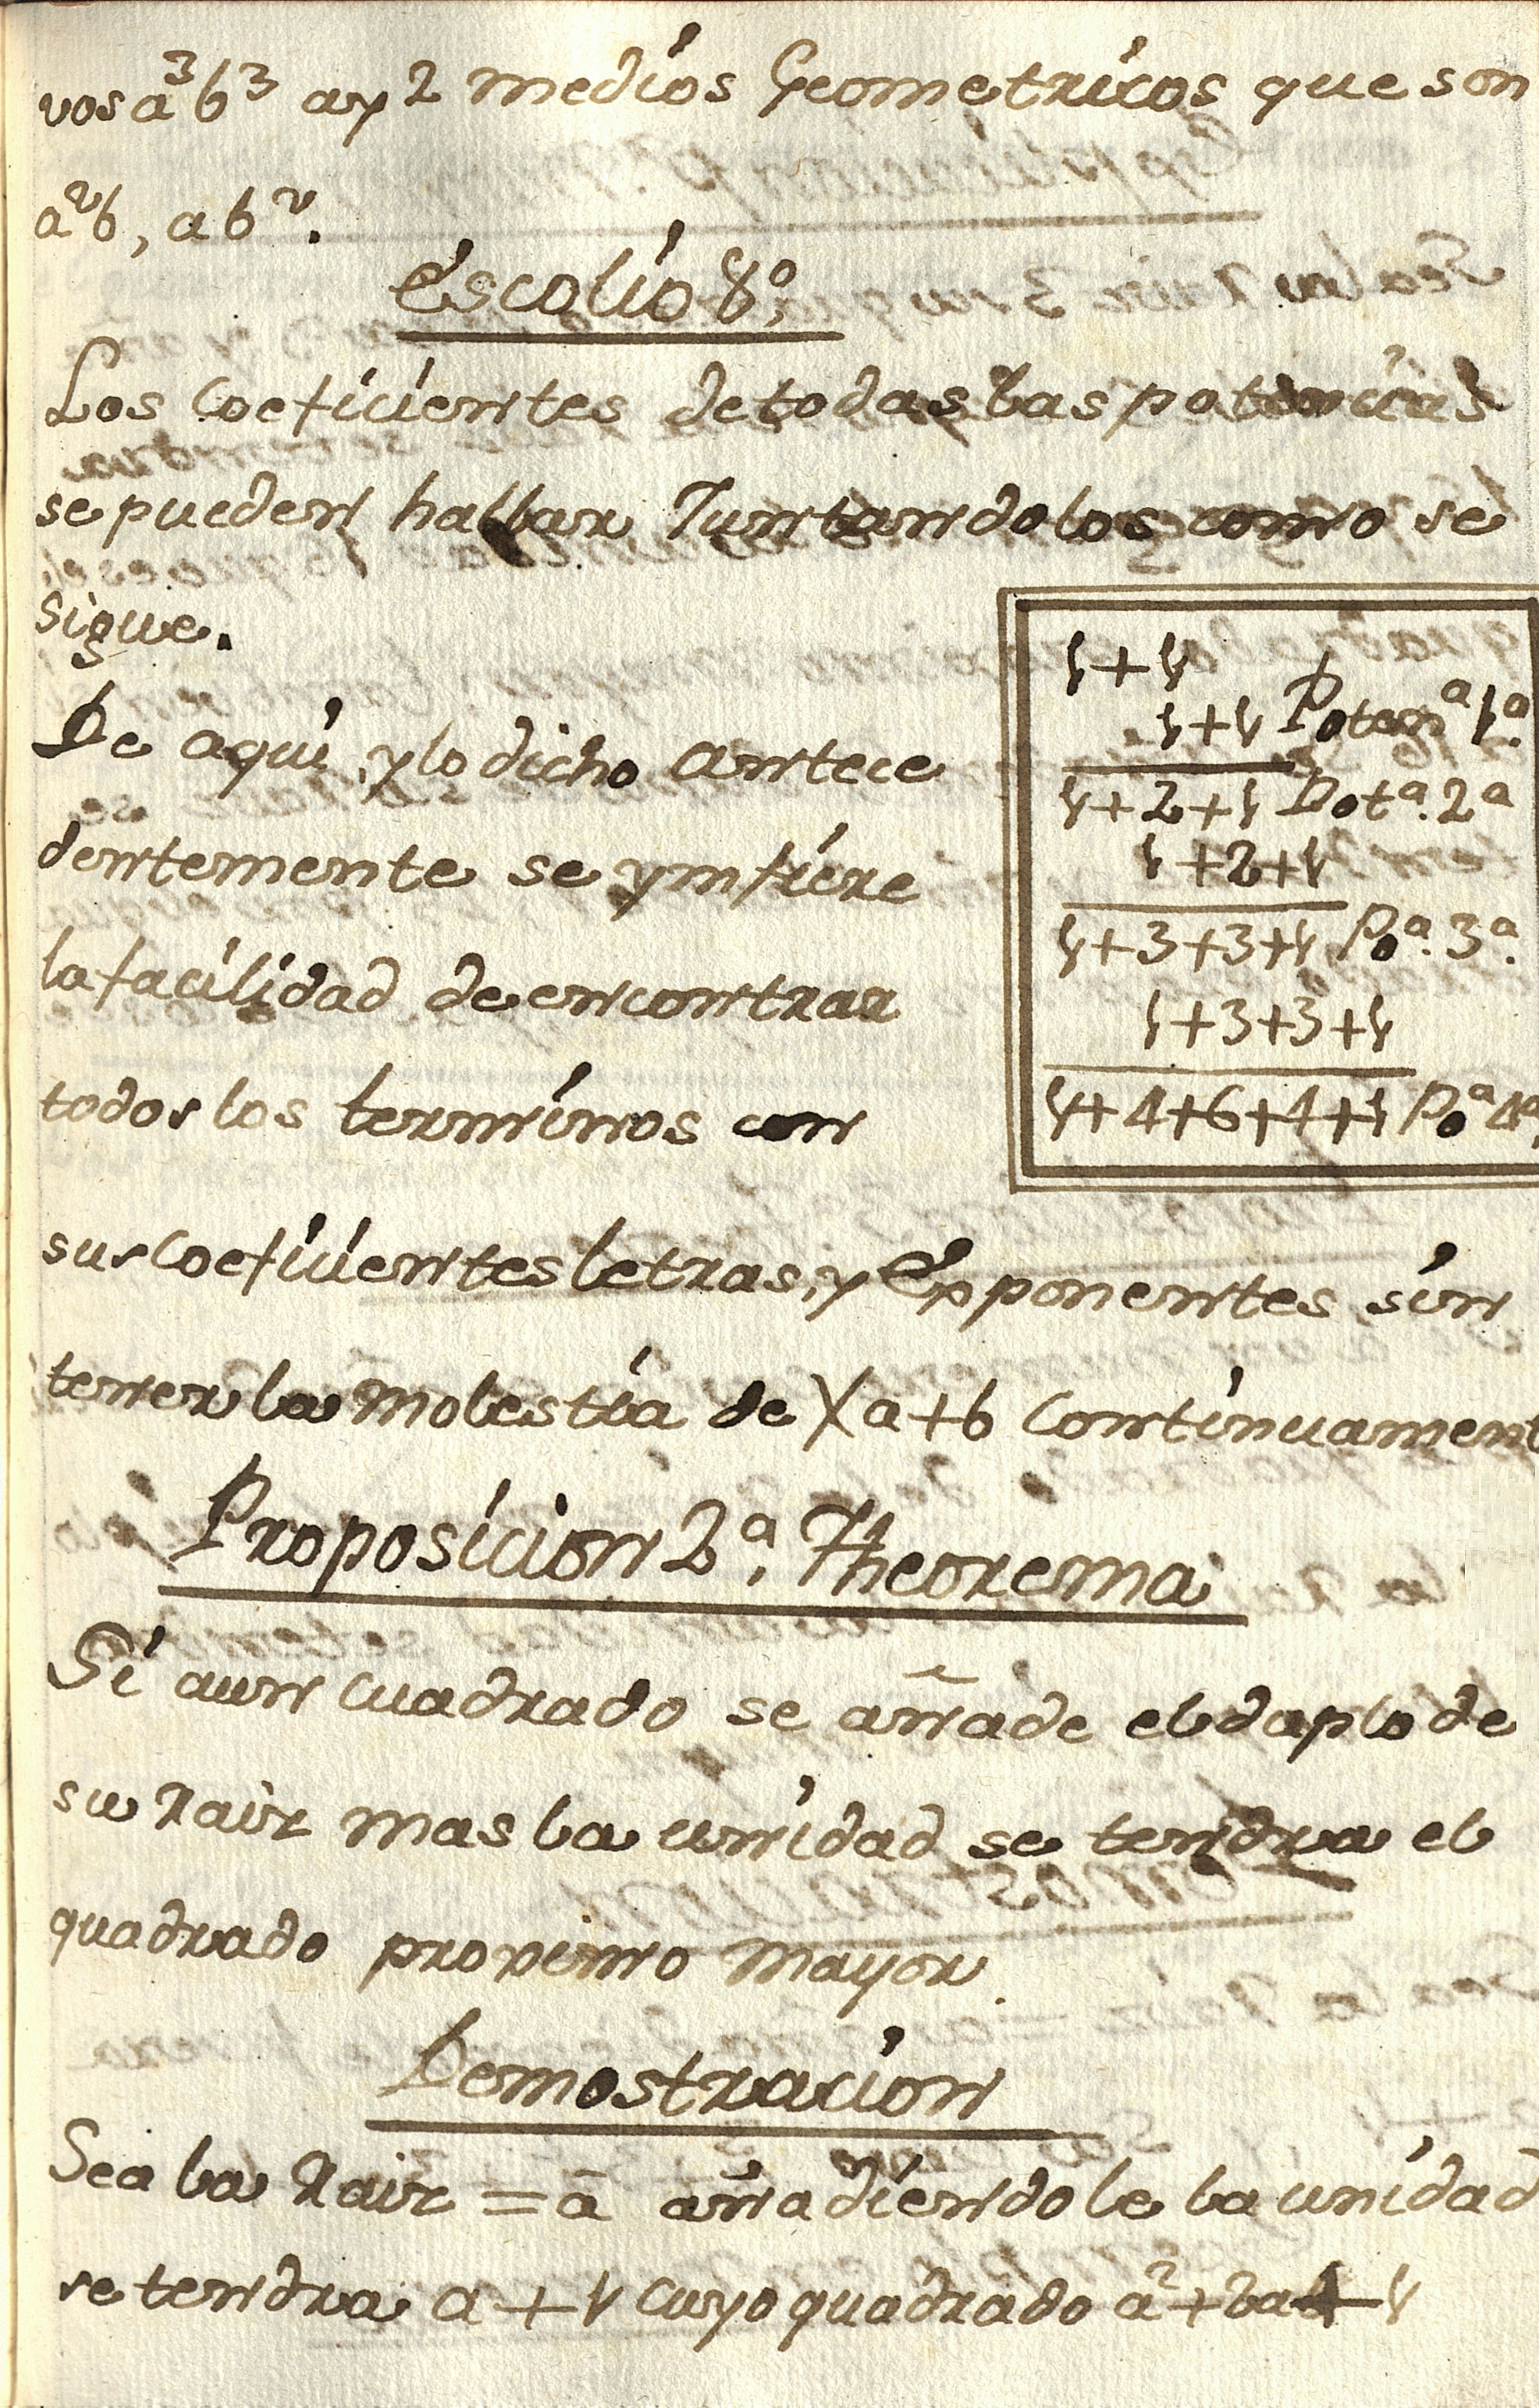 vos a³b³ ay 2 medios Geometricos que son
a²b, ab².
Escolio 8º.
Los Coeficientes de todas las potencias
se pueden hallar Juntandolos como se
sigue.
1+1
1+1 Potenª 1ª.
1+2+1 Potª. 2ª
1+2+1
1+3+3+1 Poª. 3ª.
1+3+3+1
1+4+6+4+1 Poª 4ª.
De aqui, y lo dicho antece
dentemente se ynfiere
la facilidad de encontrar
todos los terminos con
sus Coeficientes letras, y Exponentes sin
tener la molestia de X a+b Continuament
Proposicion 2ª. Theorema
Si a un cuadrado se añade el duplo de
su raiz mas la unidad se tendra el
quadrado proximo mayor.
Demostracion
Sea la Raiz = a añadiendole la unidad
se tendra a + 1 cuyo quadrado a²+2a+1